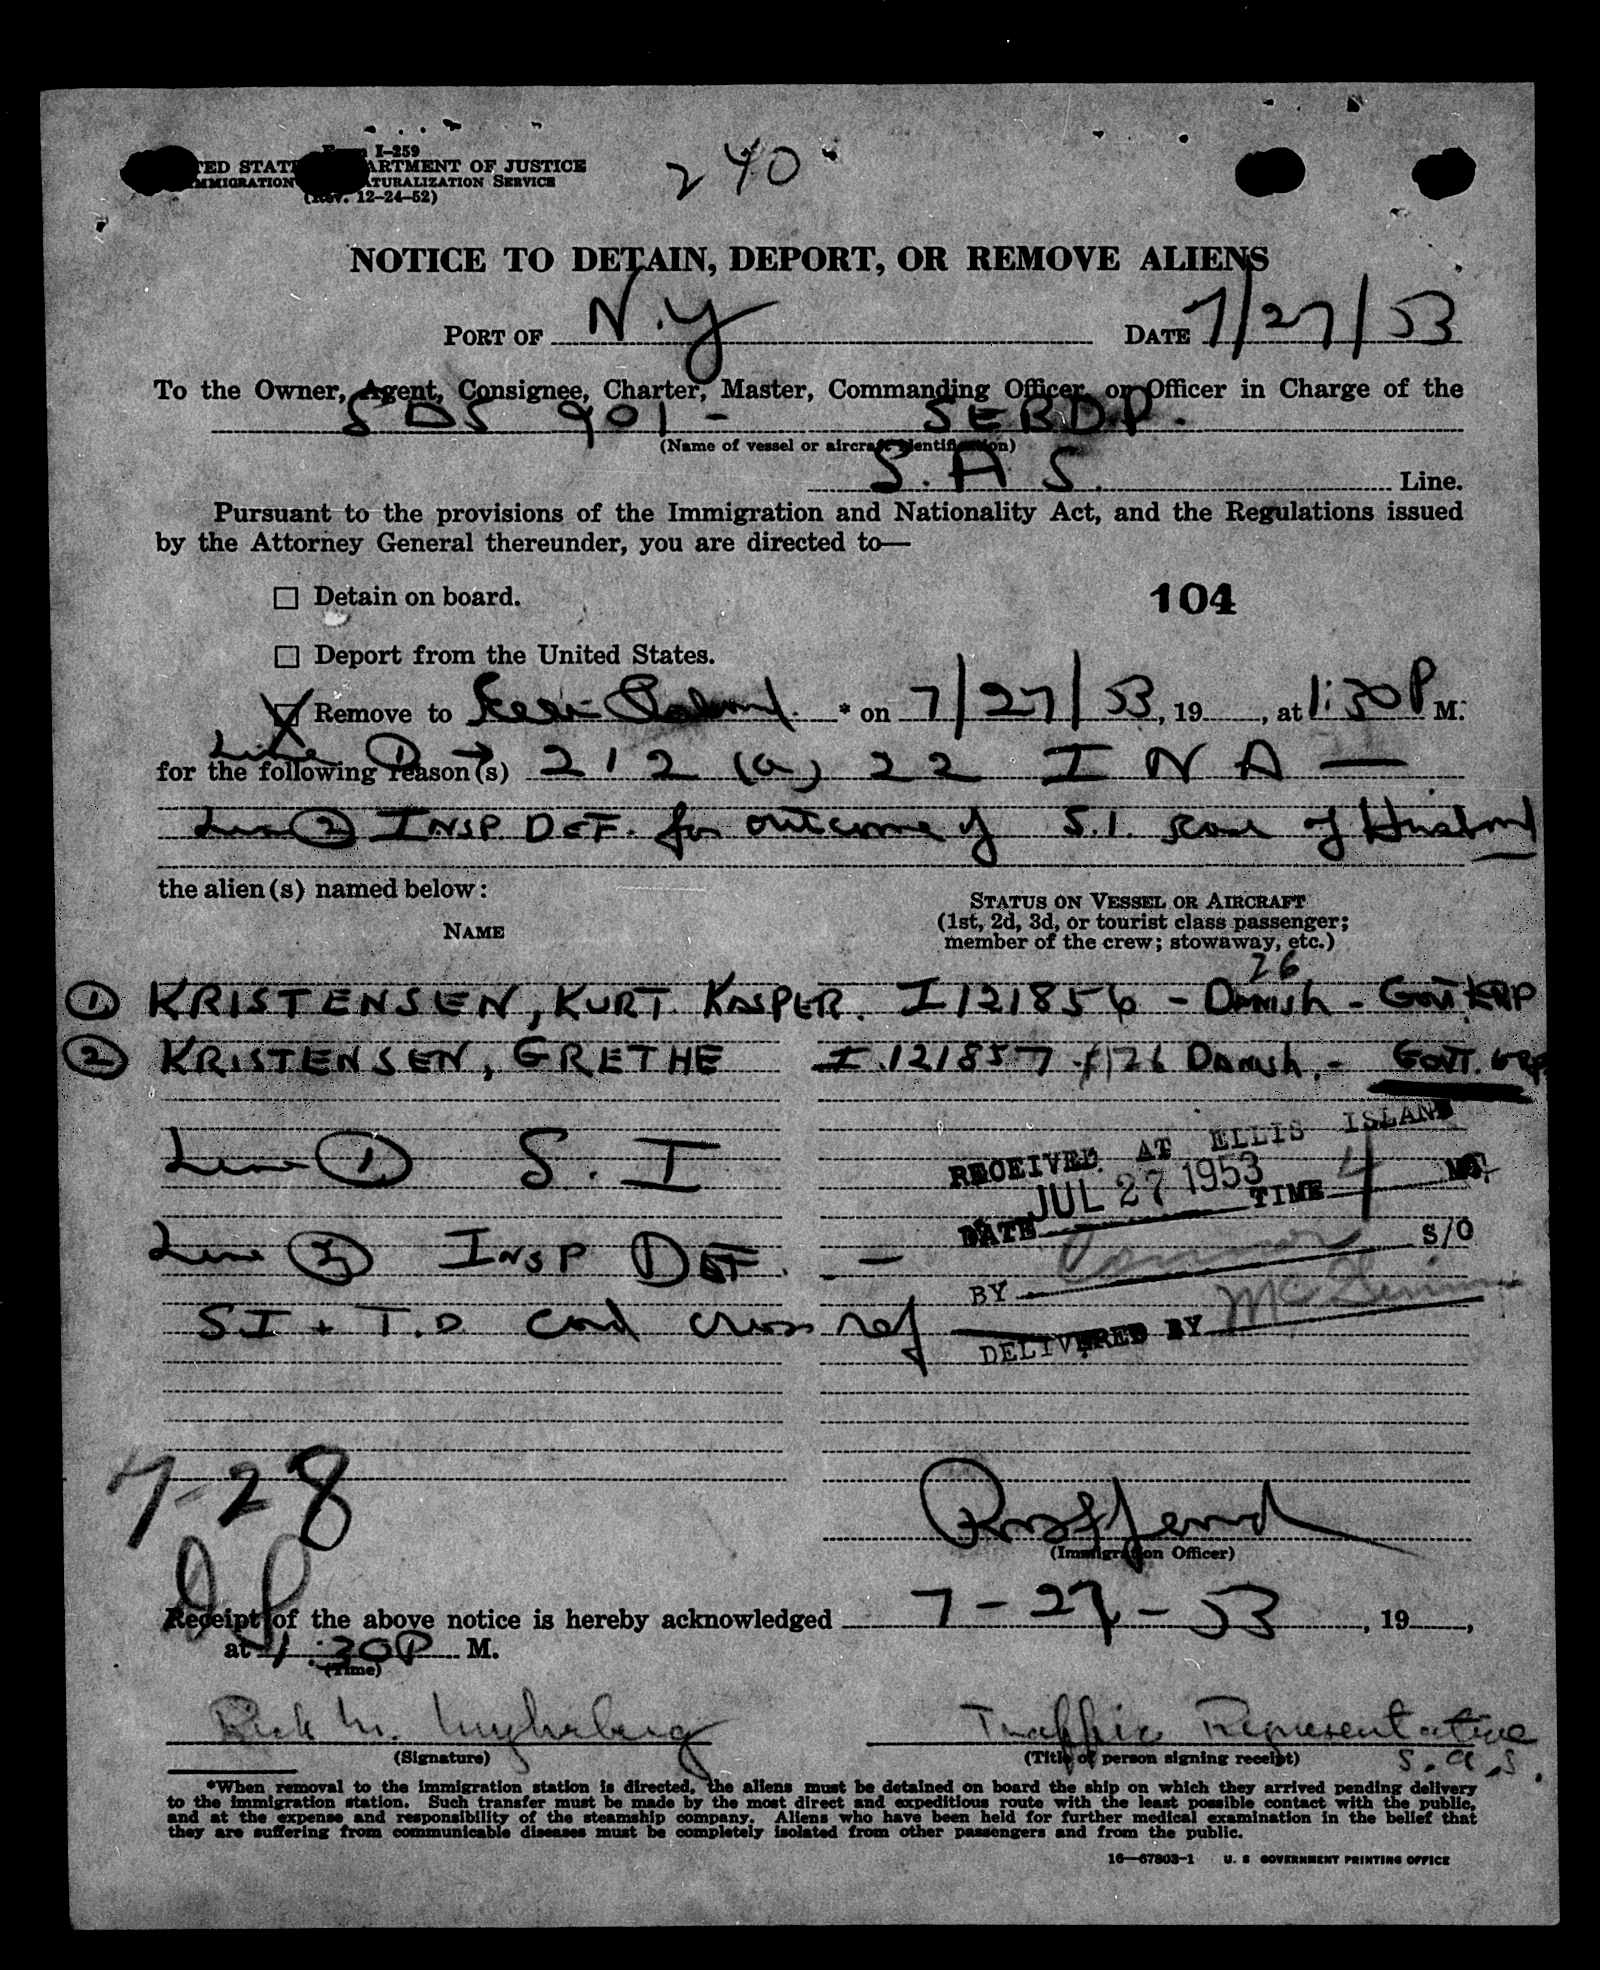 Form I-259
240
UNITED STATES DEPARTMENT OF JUSTICE
IMMIGRATION NATURALIZATION SERVICE
(Rev. 12-24-52)
NOTICE TO DETAIN, DEPORT, OR REMOVE ALIENS
PORT OF N.Y DATE 7/27/53
To the Owner, Agent, Consignee, Charter, Master, Commanding Officer, or Officer in Charge of the
SDS 901 - SEBDP.
(Name of vessel or aircraft identification)
S.A S. Line.
Pursuant to the provisions of the Immigration and Nationality Act, and the Regulations issued
by the Attorney General thereunder, you are directed to—
Detain on board. 104
Deport from the United States.
Remove to * on 7/27/53, 19, at 1:30P M.
Line ① →
for the following reason(s) 212 (a) 22 I N A —
Line ② INSP. DEF. for outcome of S.I. case of Husband
the alien(s) named below:
STATUS ON VESSEL OR AIRCRAFT
(1st, 2d, 3d, or tourist class passenger;
NAME
member of the crew; stowaway, etc.)
26
① KRISTENSEN, KURT KASPER. I 121856 - DANISH - GOVT.
② KRISTENSEN, GRETHE I.121857 26 DANISH. - GOVT.
RECEIVED AT ELLIS ISLAND
Line ① S. I
JUL 27 1953
DATE TIME 4
S/O
Line ② INSP DEF. -
BY
SI + T.D. card cross ref
DELIVERED BY
7-28
(Immigration Officer)
Receipt of the above notice is hereby acknowledged 7-27-53, 19,
at 1:30P M.
(Time)
Traffic Representative
(Signature) (Title of person signing receipt) S.A.S.
*When removal to the immigration station is directed, the aliens must be detained on board the ship on which they arrived pending delivery
to the immigration station. Such transfer must be made by the most direct and expeditious route with the least possible contact with the public,
and at the expense and responsibility of the steamship company. Aliens who have been held for further medical examination in the belief that
they are suffering from communicable diseases must be completely isolated from other passengers and from the public.
16—67803-1 U. S GOVERNMENT PRINTING OFFICE